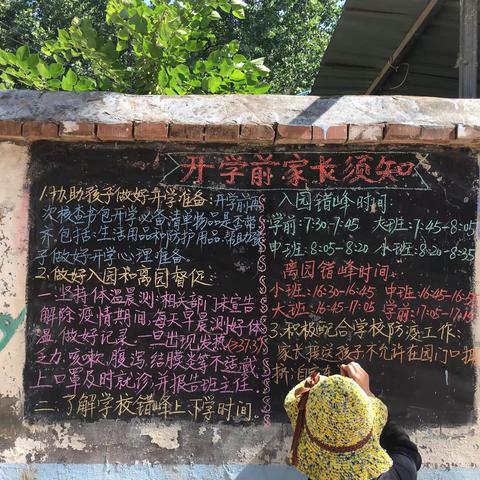 开学前家长须知
1.协助孩子做好开学准备:开学前再
次核查书包开学必备清单物品是否带
齐,包括:生活用品和防护用品.帮助孩
子做好开学心理准备.
2.做好入园和离园督促:
一.坚持体温晨测:相关部门未宣告
解除疫情期间,每天早晨测好体
温,做好记录,一旦出现发热(≥37.3)
乏力,咳嗽,腹泻,结膜炎等不适戴
上口罩及时就诊,并报告班主任
二.了解学校错峰上下学时间.
入园错峰时间:
学前:7:30-7:45 大班:7:45-8:05
中班:8:05-8:20 小班:8:20-8:35
离园错峰时间:
小班:16:30-16:45 中班:16:45-16:5
大班:16:45-17:05 学前:17:05-17:1
3.积极配合学校防疫工作:
家长接送孩子不允许在园门口拥
挤:自